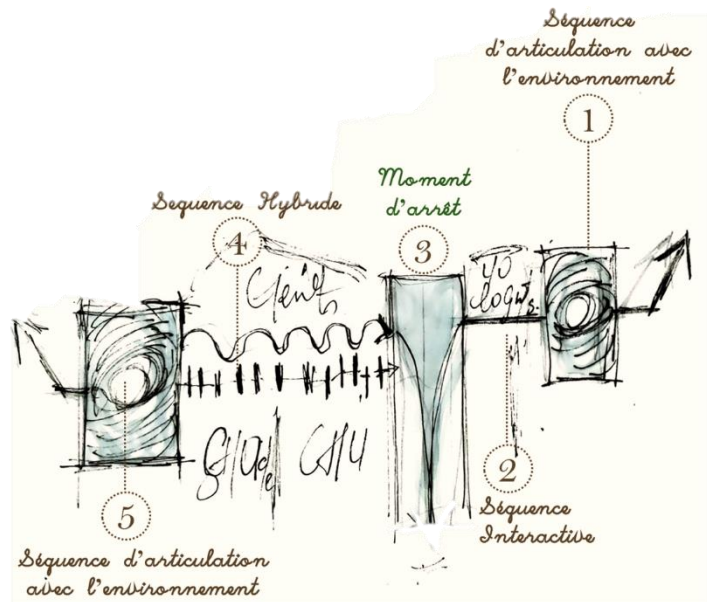 Séquence
d'articulation avec
l'environnement
1
Moment
d'arrêt
3
Sequence Hybride
4
2
Séquence
Interactive
5
Séquence d'articulation
avec l'environnement